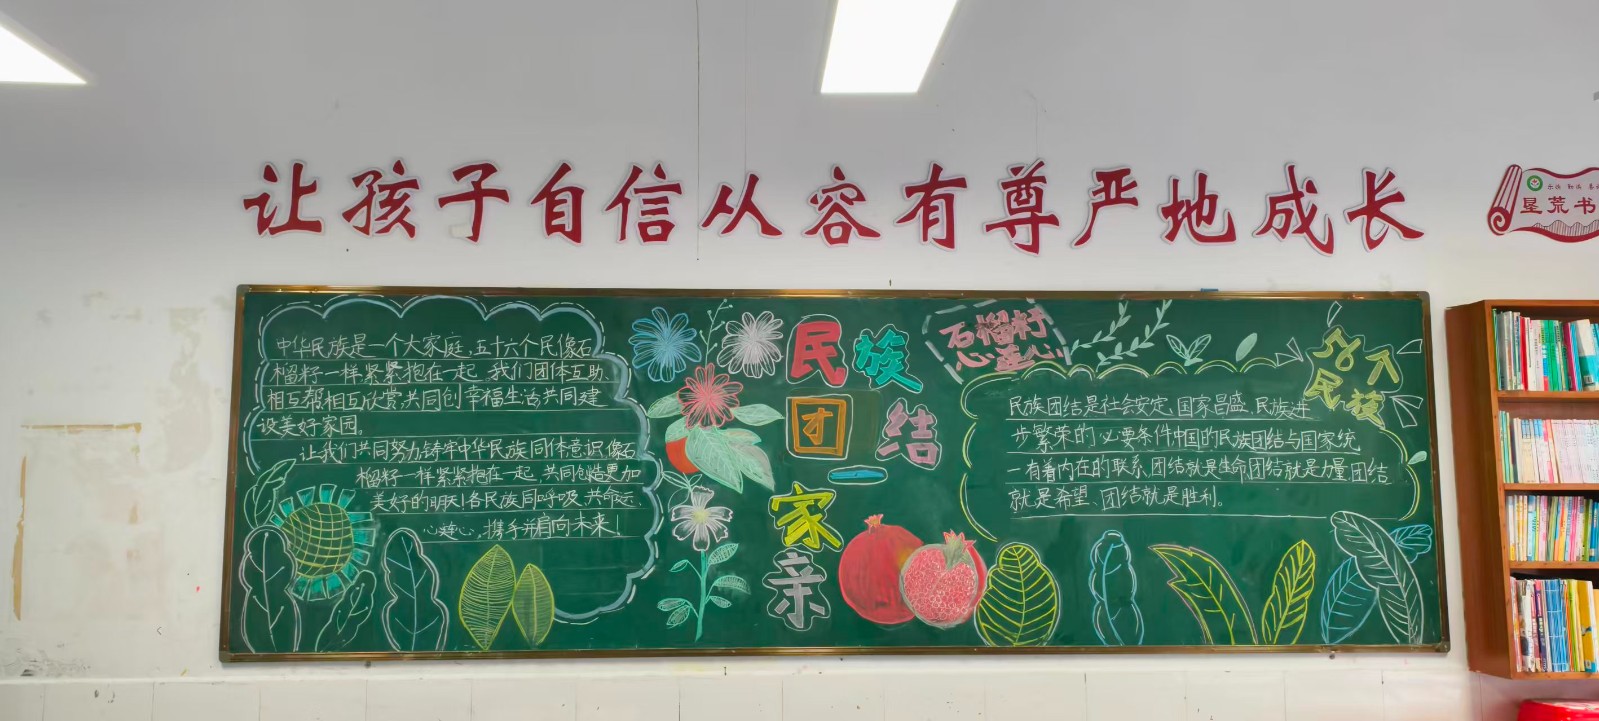 让孩子自信从容有尊严地成长
垦荒书
中华民族是一个大家庭,五十六个民像石
榴籽一样紧紧抱在一起,我们团体互助、
相互帮相互欣赏,共同创幸福生活共同建
设美好家园.
让我们共同努力铸牢中华民族同体意识像石
榴籽一样紧紧抱在一起,共同创造更加
美好的明天!各民族同呼吸、共命运、
心连心,携手并肩向未来!
民族
团结
一
家
亲
石榴籽
心连心
56个
民族
民族团结是社会安定、国家昌盛、民族进
步繁荣的必要条件中国的民族团结与国家统
一有着内在的联系,团结就是生命团结就是力量,团结
就是希望、团结就是胜利。